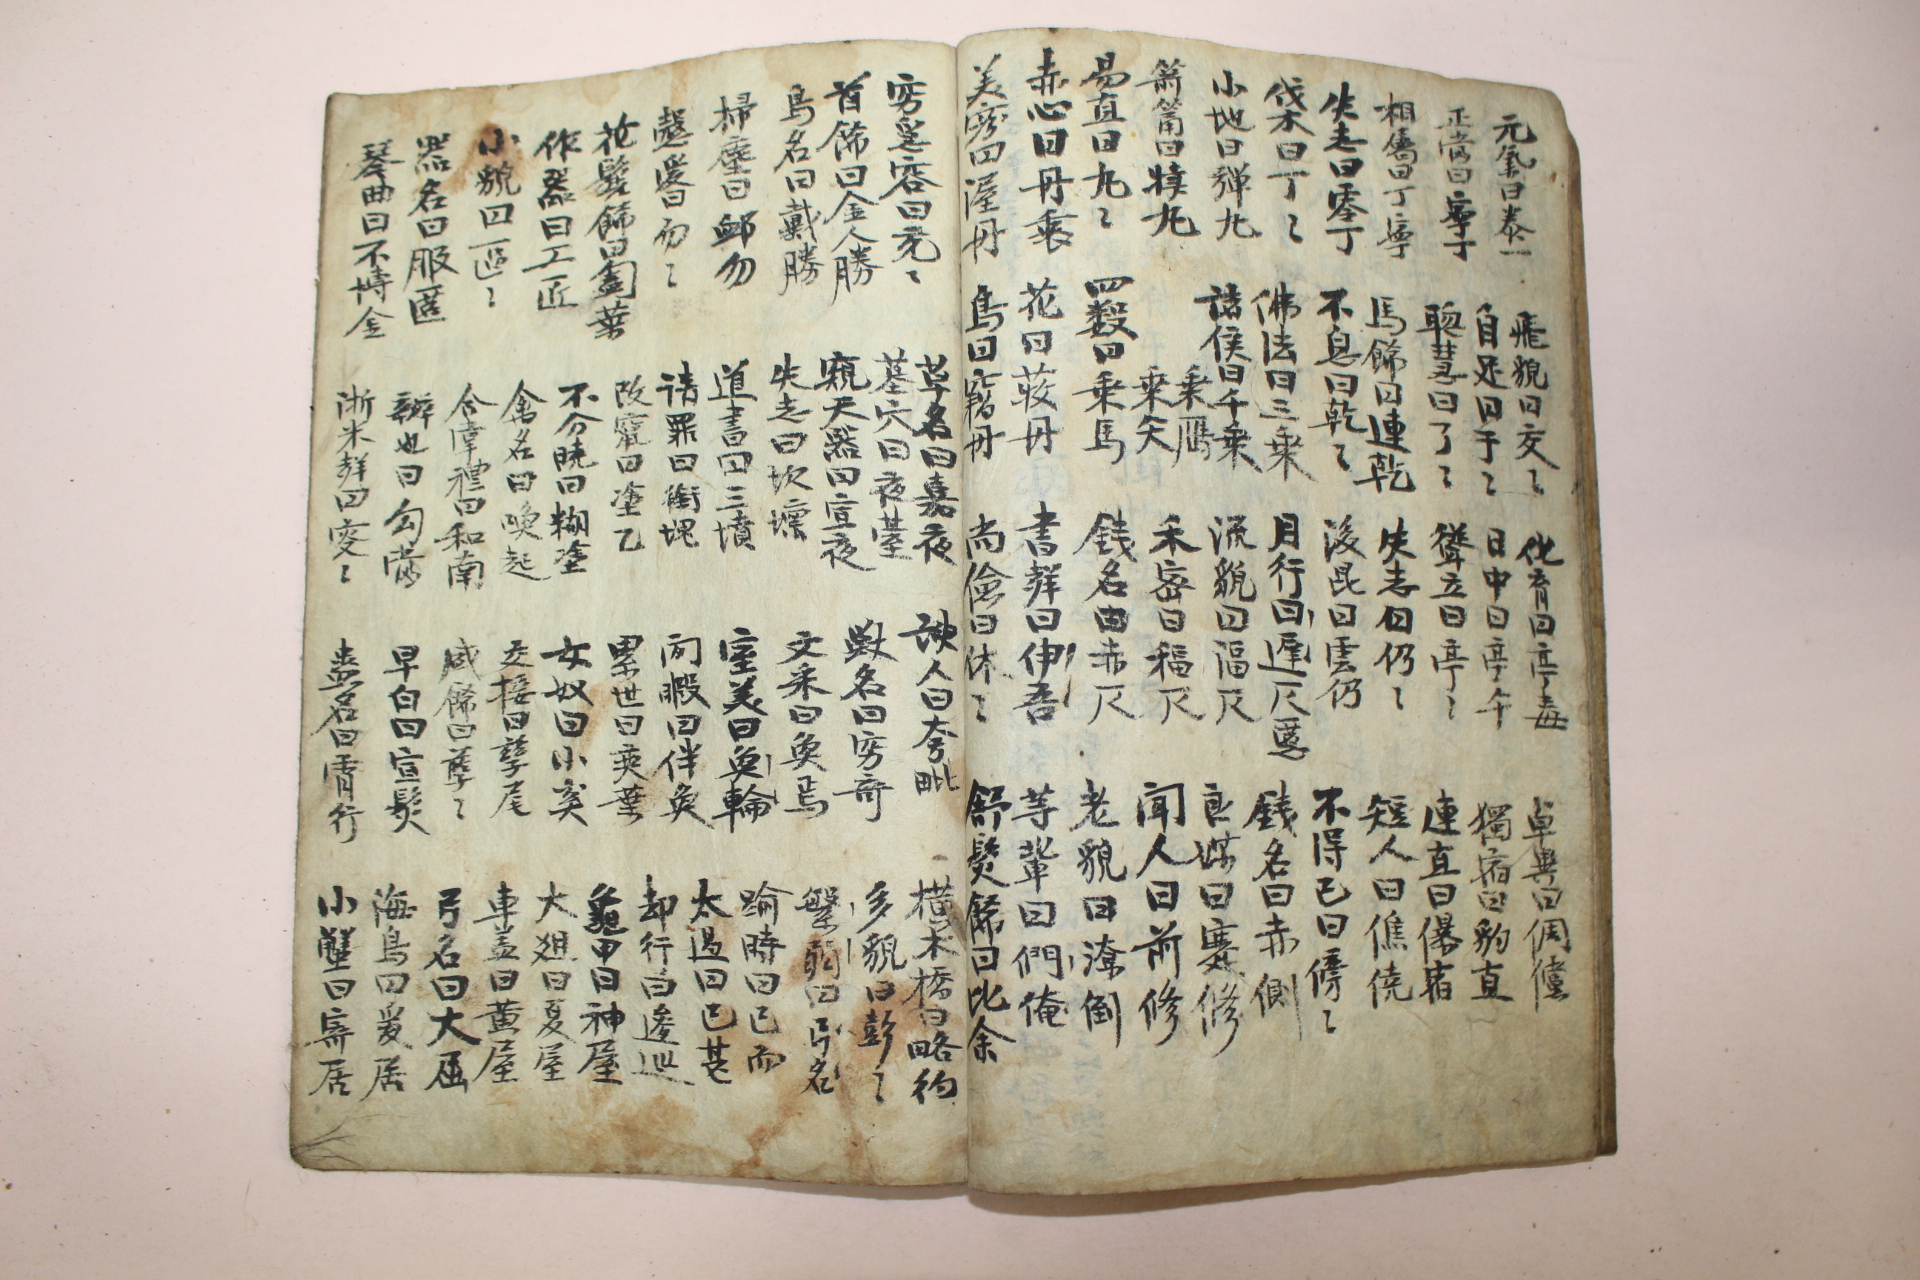 元氣曰泰一 飛貌曰交〻 化育曰亭毒 卓異曰倜儻
正當曰寧丁 自足曰于〻 日中曰亭午 獨宿曰豹直
相屬曰丁寧 聰慧曰了〻 聳立曰亭〻 連直曰儤宿
失志曰零丁 馬飾曰連乾 失志曰仍〻 短人曰僬僥
伐木曰丁〻 不息曰乾〻 後昆曰雲仍 不得已曰僇〻
小地曰彈丸 佛法曰三乘 月行曰遲仄慝 錢名曰赤側
曰 丸 諸侯曰千乘 乘雁 流貌曰湢仄 良媒曰蹇修
易直曰丸〻 乘矢 禾密曰稫仄 聞人曰前修
赤心曰丹衷 四數曰乘馬 錢名曰赤仄 老貌曰潦倒
美 曰渥丹 花曰 丹 書聲曰伊吾 等輩曰們俺
鳥曰竊丹 尚儉曰休〻 舒髮飾曰比余
容曰 〻 草名曰嘉夜 諛人曰夸毗 橫木橋曰略彴
首飾曰金人勝 墓穴曰夜臺 獸名曰窮奇 多貌曰彭〻
鳥名曰戴勝 窺天器曰宣夜 文采曰奐焉 繁弱曰弓名
掃塵曰卹勿 失志曰坎壈 室美曰奐輪 踰時曰已而
愛曰勿〻 道書曰三墳 閑暇曰伴奐 太過曰已甚
花髮飾曰㔩葉 請罪曰銜塊 累世曰奕葉 却行曰逡巡
作器曰工匠 改竄曰塗乙 女奴曰小奚 龜甲曰神屋
小貌曰區〻 不分曉曰糊塗 交接曰孳尾 大俎曰夏屋
器名曰服匿 禽名曰喚起 盛飾曰孽〻 車蓋曰黃屋
琴曲曰不博金 合掌禮曰和南 早白曰宣髮 弓名曰大屈
辦也曰勾當 蟲名曰宵行 海鳥曰爰居
浙米聲曰叟〻 小蟹曰寄居